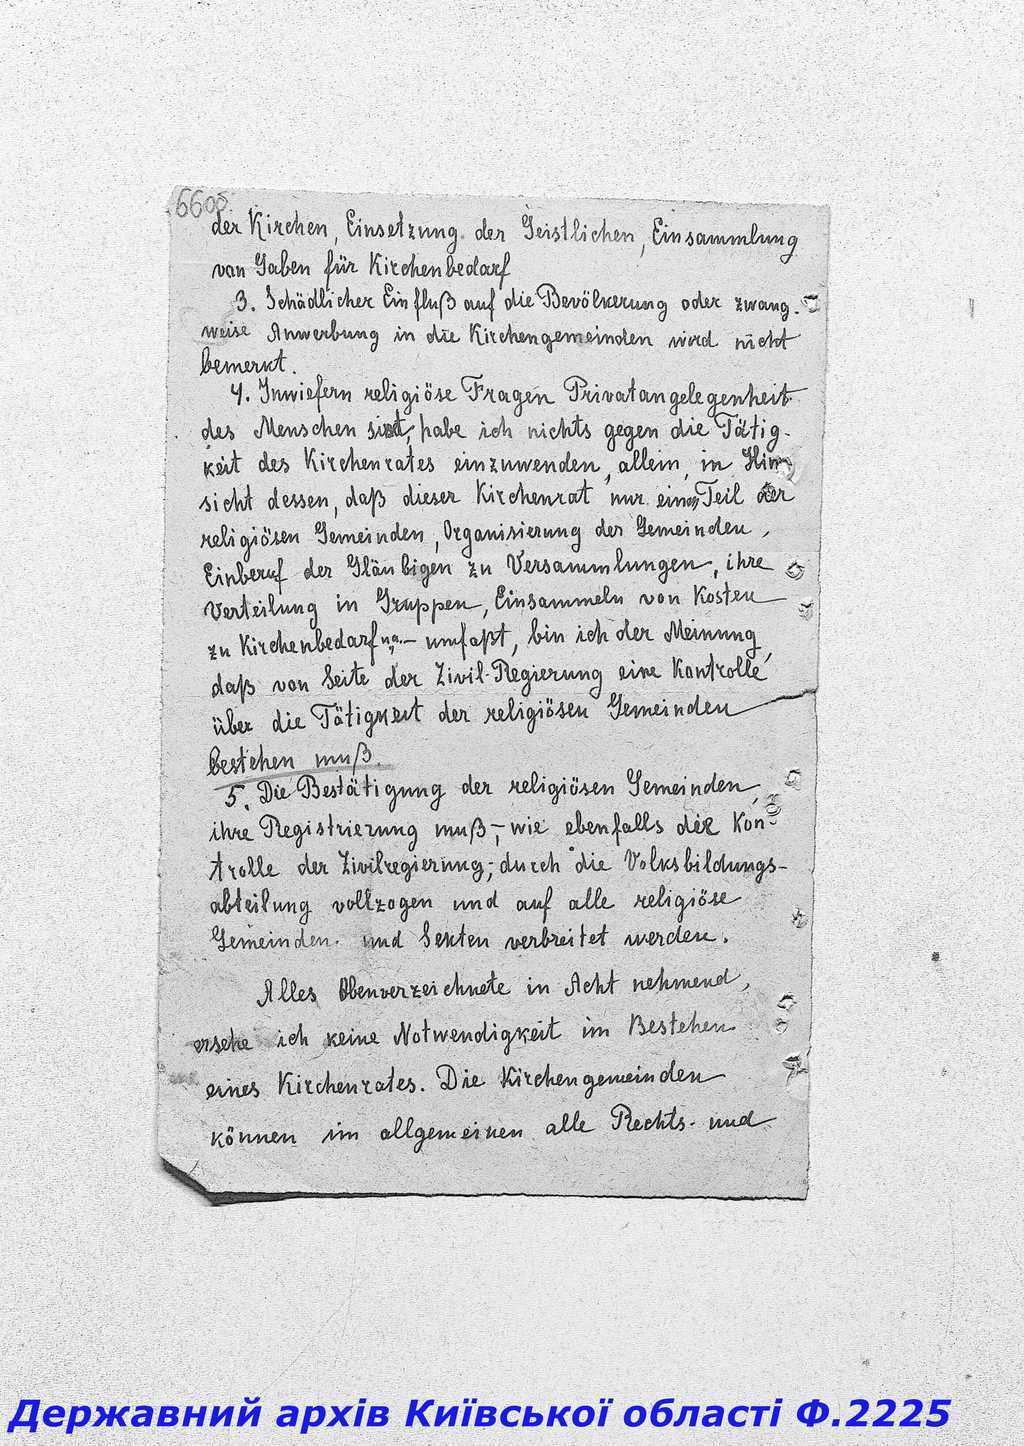 660б
der Kirchen, Einsetzung der Geistlichen, Einsammlung
von Gaben für Kirchenbedarf
3. Schädlicher Einfluß auf die Bevölkerung oder zwang-
weise Anwerbung in die Kirchengemeinden wird nicht
bemerkt.
4. Inwiefern religiöse Fragen Privatangelegenheit
des Menschen sind, habe ich nichts gegen die Tätig-
keit des Kirchenrates einzuwenden, allein, in Hin-
sicht dessen, daß dieser Kirchenrat nur einen Teil der
religiösen Gemeinden, Organisierung der Gemeinden,
Einberuf der Gläubigen zu Versammlungen, ihre
Verteilung in Gruppen, Einsammeln von Kosten
zu Kirchenbedarf u.a.– umfaßt, bin ich der Meinung,
daß von Seite der Zivil-Regierung eine Kontrolle
über die Tätigkeit der religiösen Gemeinden
bestehen muß.
5. Die Bestätigung der religiösen Gemeinden,
ihre Registrierung muß,– wie ebenfalls die Kon-
trolle der Zivilregierung,– durch die Volksbildungs-
abteilung vollzogen und auf alle religiöse
Gemeinden und Sekten verbreitet werden.
Alles Obenverzeichnete in Acht nehmend,
ersehe ich keine Notwendigkeit im Bestehen
eines Kirchenrates. Die Kirchengemeinden
können im allgemeinen alle Rechts- und
Державний архів Київської області Ф.2225